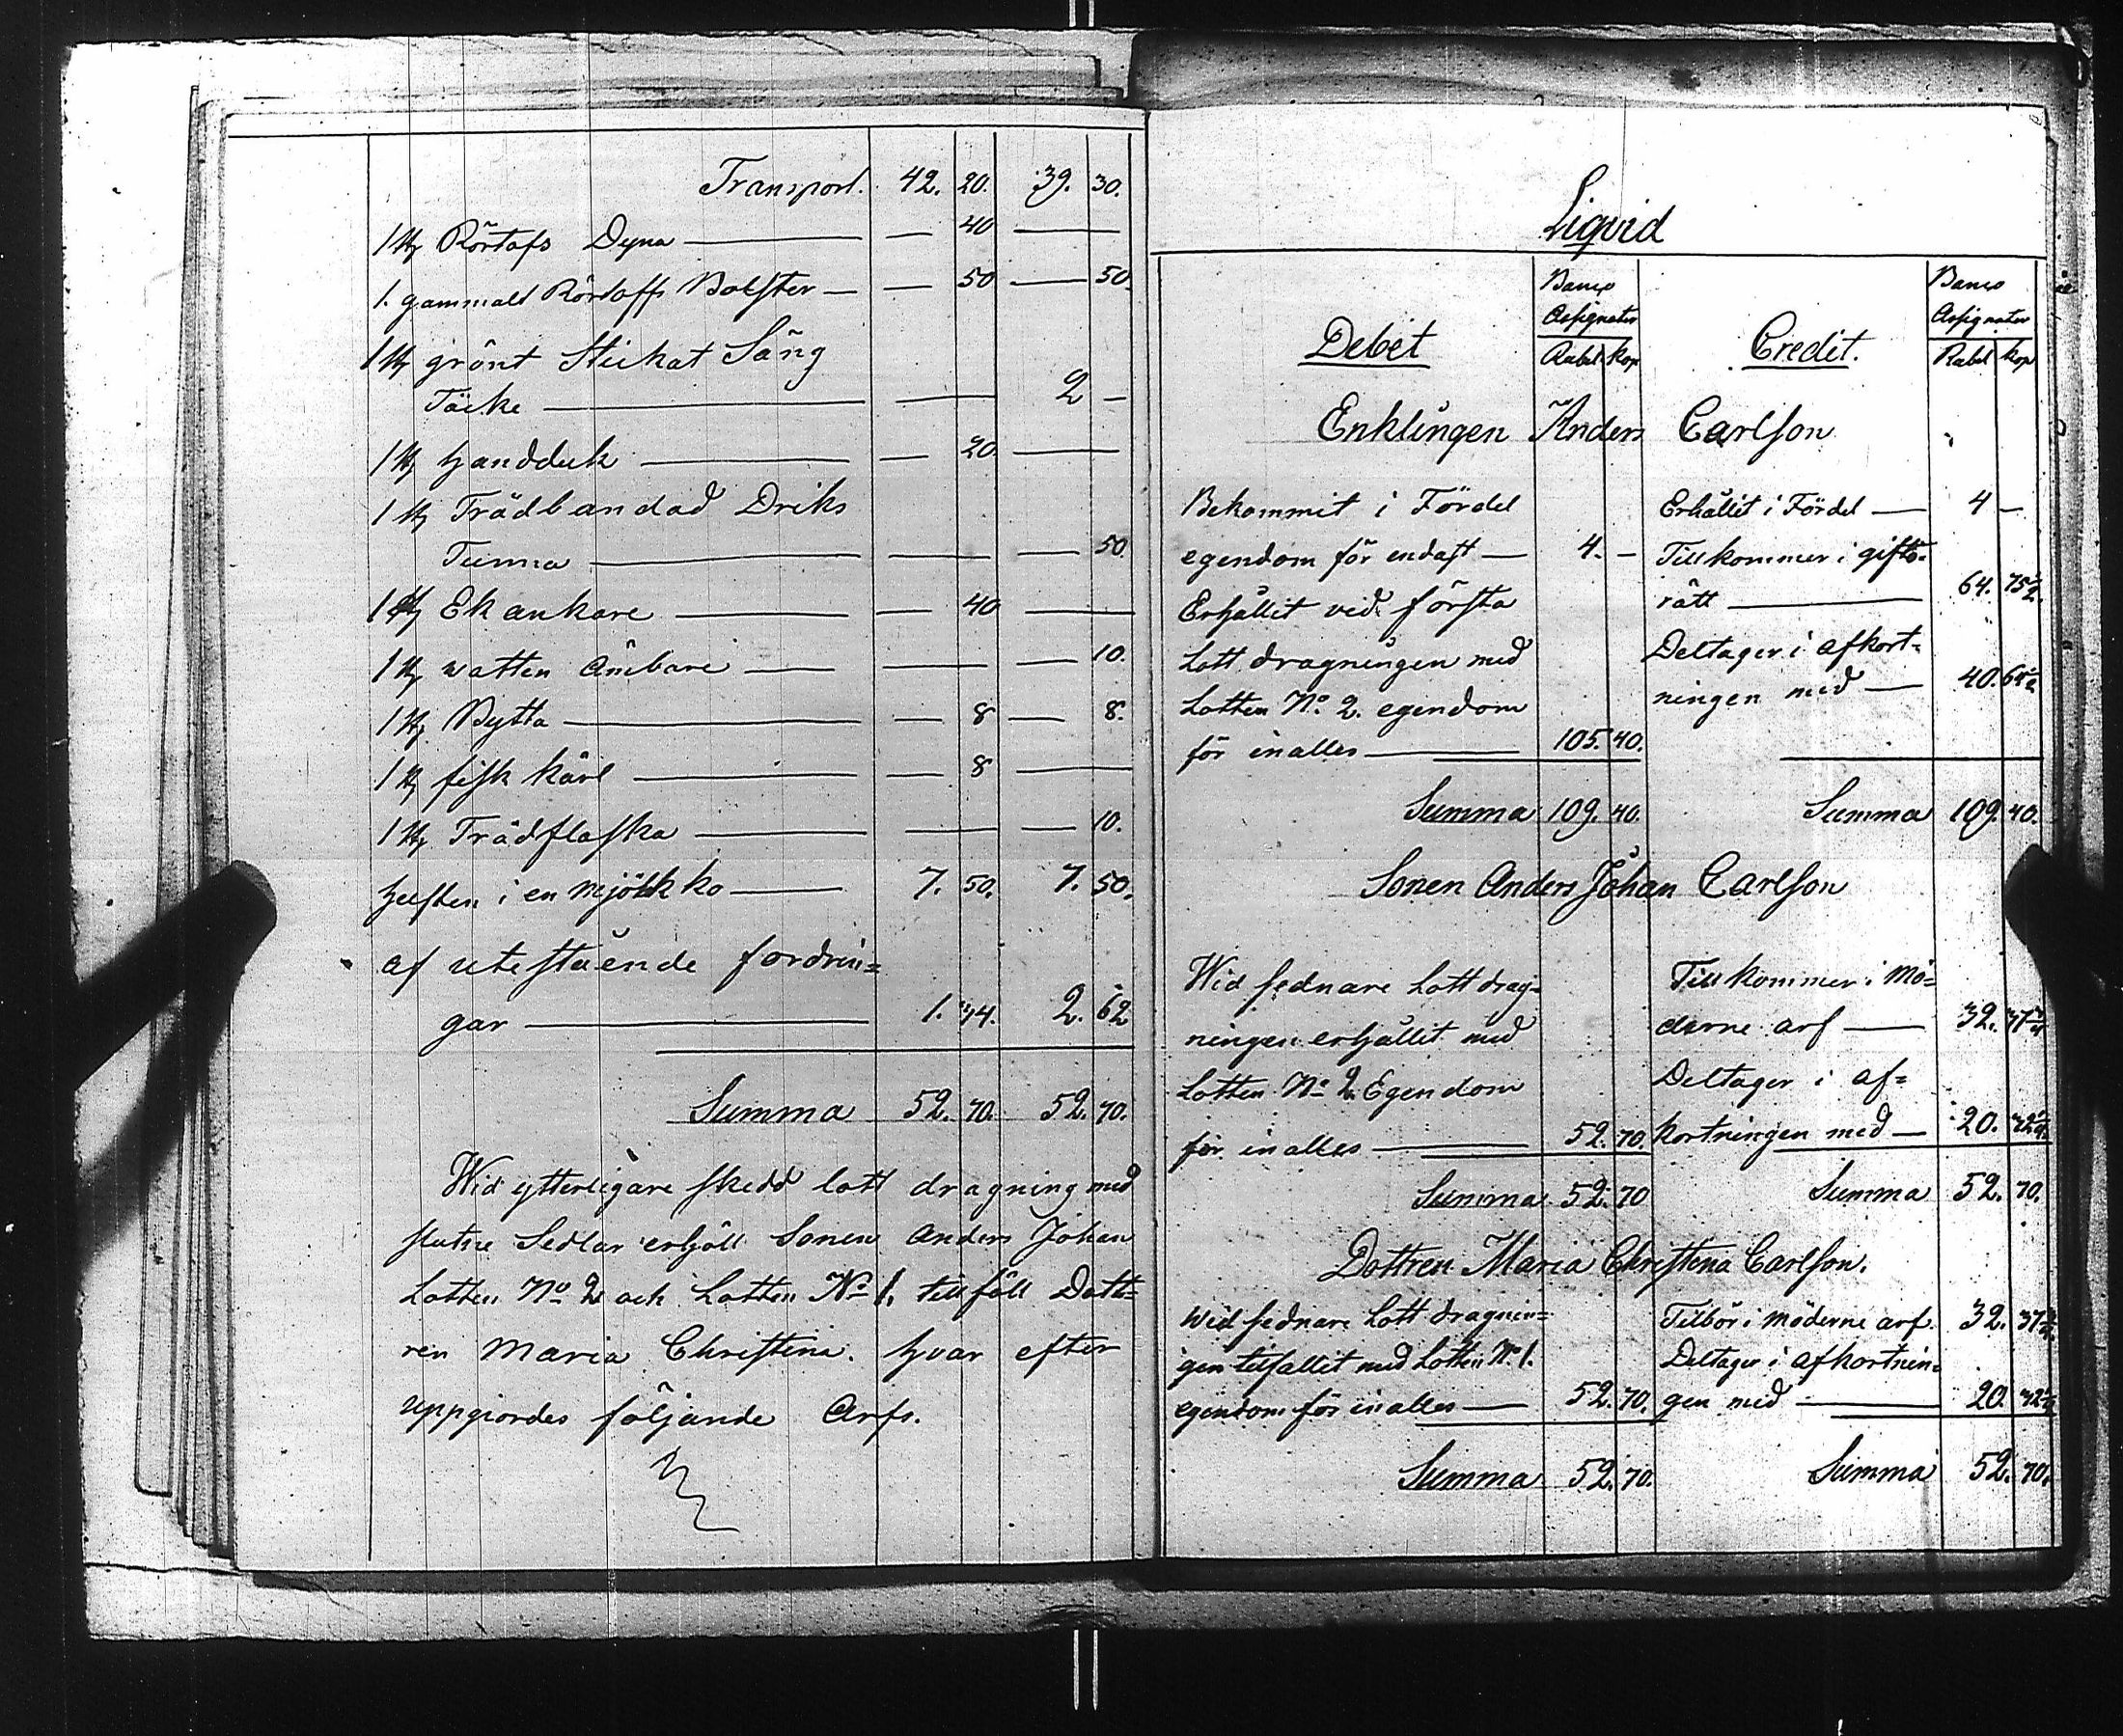 Transport. 42. 20. 39. 30.
1 st Rörtofs Dyna — — 40 —
1. gammalt Rörtoffs Bolster — — 50 — 50.
1 st grönt Stickat Säng
Täcke — — 2 —
1 st handduk — — 20 —
1 st Trädbandad Driks
Tunna — — — 50.
1 st Ekankare — — 40 —
1 st watten Ämbare — — — 10.
1 st Bytta — — 8 — 8.
1 st fisk kärl — — 8 —
1 st Trädflaska — — — 10.
helften i en Mjölkko — 7. 50. 7. 50.
af utestående fordrin=
gar — 1. 44. 2. 62
Summa 52. 70. 52. 70.
Wid ytterligare skedd lott dragning med
slutne Sedlar erhöll Sonen Anders Johan
Lotten No 2 och Lotten No 1. tillföll Dott=
ren Maria Christina. hvar efter
uppgiordes följande Arfs.
Liqvid
Debet
Banco
Assignater
Rubel kop
Credit.
Banco
Assignater
Rubel kop
Enklingen Anders Carlson
Bekommit i Fördel
egendom för endast — 4. —
Erhållit vid första
Lott dragningen med
Lotten No. 2. egendom
för inalles — 105. 40.
Summa 109. 40.
Erhållit i Fördel — 4 —
Tillkommer i gifto=
rätt — 64. 75 1/2.
Deltager i afkort=
ningen med — 40. 64 1/2
Summa 109. 40.
Sonen Anders Johan Carlson
Wid sednare Lott drag=
ningen erhållit med
Lotten No 2. Egendom
för inalles — 52. 70.
Summa 52. 70
Tillkommer i Mö=
derne arf — 32. 37 3/4
Deltager i af=
kortningen med — 20. 32 1/4.
Summa 52. 70.
Dottren Maria Christina Carlson.
Wid sednare Lott dragnin=
gen tilfallit med Lotten No 1.
egendom för inalles — 52. 70.
Summa 52. 70.
Tilbör i Möderne arf 32. 37 3/4.
Deltager i afkortnin=
gen med — 20. 32 1/4
Summa 52. 70.